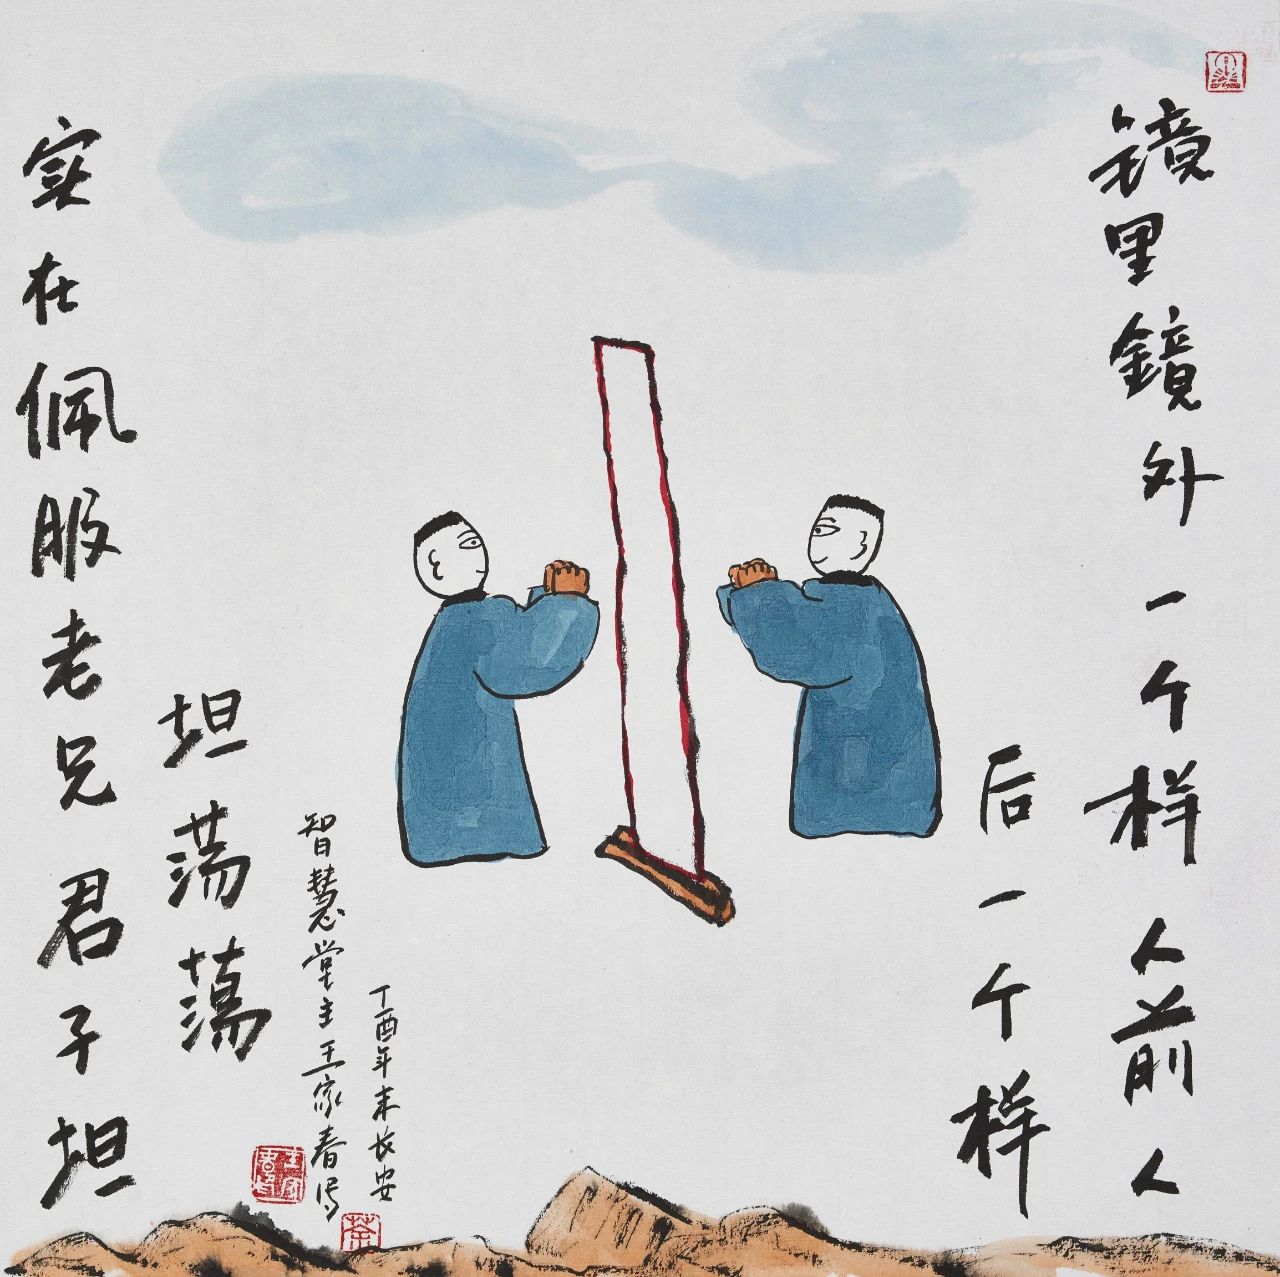 镜里鏡外一个样人前人
后一个样
实在佩服老兄君子坦
坦荡蕩
丁酉年末长安
智慧堂主王家春写